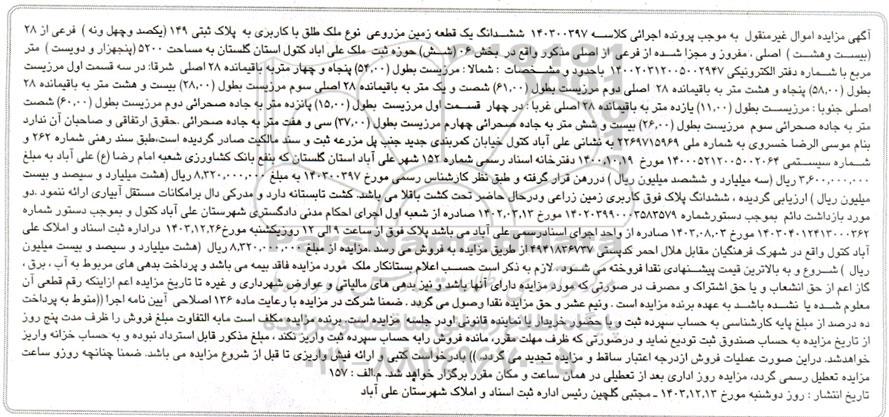 آگهی مزایده اموال غیرمنقول به موجب پرونده اجرائی کلاسه ۱۴۰۳۰۰۳۹۷ ششدانگ یک قطعه زمین مزروعی نوع ملک طلق با کاربری به پلاک ثبتی ۱۴۹ (یکصد وچهل ونه ) فرعی از ۲۸
(بیست وهشت ) اصلی ، مفروز و مجزا شده از فرعی از اصلی مذکور واقع در بخش ۰۶ (شش) حوزه ثبت ملک علی اباد کتول استان گلستان به مساحت ۵۲۰۰ (پنجهزار و دویست ) متر
مربع با شماره دفتر الکترونیکی ۱۴۰۰۲۰۳۱۲۰۰۵۰۰۲۹۴۷ باحدود و مشخصات : شمالا : مرزیست بطول (۵۴,۰۰) پنجاه و چهار متر به باقیمانده ۲۸ اصلی شرقا: در سه قسمت اول مرزیست
بطول (۵۸,۰۰) پنجاه و هشت متر به باقیمانده ۲۸ اصلی دوم مرزیست بطول (۶۱,۰۰) شصت و یک متر به باقیمانده ۲۸ اصلی سوم مرزیست بطول (۲۸,۰۰) بیست و هشت متر به باقیمانده ۲۸
اصلی جنوبا : مرزیست بطول (۱۱,۰۰) یازده متر به باقیمانده ۲۸ اصلی غربا : در چهار قسمت اول مرزیست بطول (۱۵,۰۰) پانزده متر به جاده صحرائی دوم مرزیست بطول (۶۰,۰۰) شصت
متر به جاده صحرائی سوم مرزیست بطول (۲۶,۰۰) بیست و شش متر به جاده صحرائی چهارم مرزیست بطول (۳۷,۰۰) سی و هفت متر به جاده صحرائی .حقوق ارتفاقی و صاحبان آن ندارد
بنام موسی الرضا خسروی به شماره ملی ۲۲۶۹۷۱۵۹۶۹ به نشانی علی آباد کتول خیابان کمربندی جدید جنب پل مزرعه ثبت و سند مالکیت صادر گردیده است،طبق سند رهنی شماره ۲۶۲ و
شماره سیستمی ۱۴۰۰۰۵۲۱۲۰۰۵۰۰۲۰۶۴ مورخ ۱۴۰۰,۱۰,۱۹ دفترخانه اسناد رسمی شماره ۱۵۲ شهر علی آباد استان گلستان که بنفع بانک کشاورزی شعبه امام رضا (ع) علی آباد به مبلغ
۳,۶۰۰,۰۰۰,۰۰۰ ریال (سه میلیارد و ششصد میلیون ریال ) دررهن قرار گرفته و طبق نظر کارشناس رسمی مورخ ۱۴۰۳۰۰۳۹۷ به مبلغ ۸,۳۲۰,۰۰۰,۰۰۰ ریال (هشت میلیارد و سیصد و بیست
میلیون ریال ) ارزیابی گردیده ، ششدانگ پلاک فوق کاربری زمین زراعی ودرحال حاضر تحت کشت باقلا می باشد. کشت تابستانه دارد و مدرکی دال برامکانات مستقل آبیاری ارائه ننمود .دو
مورد بازداشت دائم بموجب دستورشماره ۱۴۰۲۰۳۹۹۰۰۰۳۵۸۳۵۷۹ مورخ ۱۴۰۲,۰۳,۱۳ صادره از شعبه اول اجرای احکام مدنی دادگستری شهرستان علی آباد کتول و بموجب دستور شماره
۱۴۰۳۰۴۰۱۲۴۱۳۰۰۰۳۶۲ مورخ ۱۴۰۳,۰۸,۰۳ صادره از واحد اجرای اسنادرسمی علی آباد می باشد پلاک فوق از ساعت ۹ الی ۱۲ روزیکشنبه مورخ۱۴۰۳,۱۲,۲۶ دراداره ثبت اسناد و املاک علی
آباد کتول واقع در شهرک فرهنگیان مقابل هلال احمر کدپستی ۴۹۴۱۸۳۶۷۳۷ از طریق مزایده به فروش می رسد .مزایده از مبلغ ۸,۳۲۰,۰۰۰,۰۰۰ ریال (هشت میلیارد و سیصد و بیست میلیون
ریال ) شروع و به بالاترین قیمت پیشنهادی نقدا فروخته می شود.لازم به ذکر است حسب اعلام بستانکار ملک مورد مزایده فاقد بیمه می باشد و پرداخت بدهی های مربوط به آب ، برق ،
گاز اعم از حق انشعاب و یا حق اشتراک و مصرف در صورتی که مورد مزایده دارای آنها باشد و نیز بدهی های مالیاتی و عوارض شهرداری و غیره تا تاریخ مزایده اعم ازاینکه رقم قطعی آن
معلوم شده یا نشده باشد به عهده برنده مزایده است . ونیم عشر و حق مزایده نقدا وصول می گردد . ضمنا شرکت در مزایده با رعایت ماده ۱۳۶ اصلاحی آیین نامه اجرا ((منوط به پرداخت
ده درصد از مبلغ پایه کارشناسی به حساب سپرده ثبت و با حضور خریدار یا نماینده قانونی اودر جلسه مزایده است. برنده مزایده مکلف است مابه التفاوت مبلغ فروش را ظرف مدت پنج روز
از تاریخ مزایده به حساب صندوق ثبت تودیع نماید و درصورتی که ظرف مهلت مقرر، مانده فروش رابه حساب سپرده ثبت واریز نکند ، مبلغ مذکور قابل استرداد نبوده و به حساب خزانه واریز
خواهدشد. دراین صورت عملیات فروش ازدرجه اعتبار ساقط و مزایده تجدید می گردد.)) بادرخواست کتبی و ارائه فیش واریزی تا قبل از شروع مزایده می باشد. ضمنا چنانچه روزو ساعت
مزایده تعطیل رسمی گردد، مزایده روز اداری بعد از تعطیلی در همان ساعت و مکان مقرر برگزار خواهد شد. م.الف : ۱۵۷
تاریخ انتشار : روز دوشنبه مورخ ۱۴۰۳,۱۲,۱۳ ـ مجتبی گلچین رئیس اداره ثبت اسناد و املاک شهرستان علی آباد